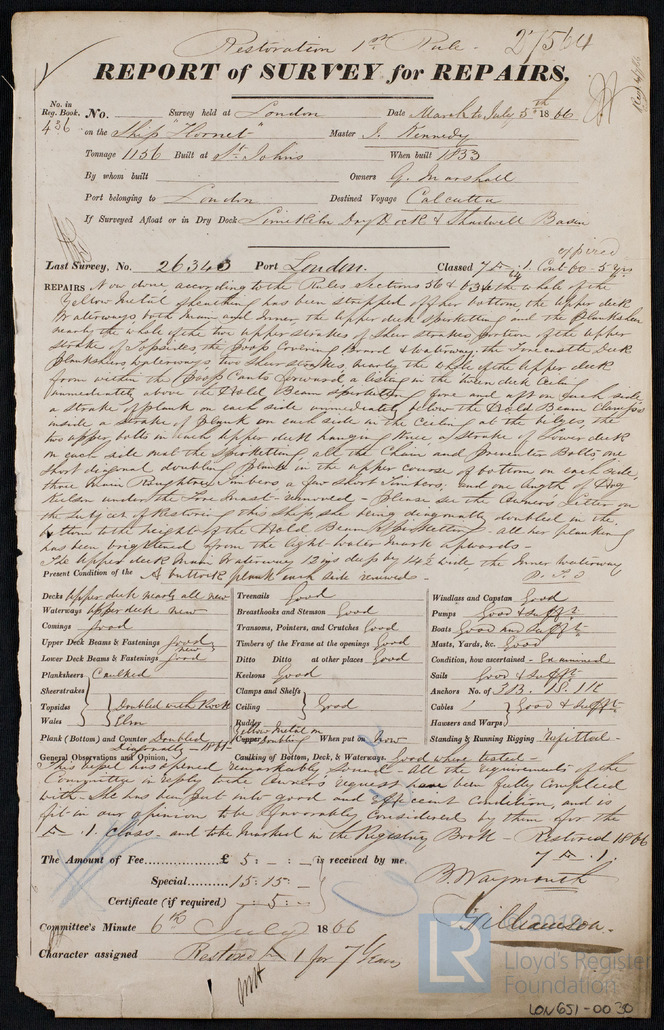 Restoration 1st Rule. 27564
REPORT of SURVEY for REPAIRS.
No. in Reg. Book. 436 No. Survey held at London Date March to July 5th 1866
on the Ship "Hornet" Master J. Kennedy
Tonnage 1156 Built at St. Johns When built 1853
By whom built Owners G. Marshall
Port belonging to London Destined Voyage Calcutta
If Surveyed Afloat or in Dry Dock Limekiln Dry Dock & Shadwell Basin
expired
Last Survey, No. 26343 Port London. Classed 7 A.1. Cont 60 - 5 yrs
REPAIRS Now done according to the Rules Sections 56 & the whole of the
Yellow Metal sheathing has been stripped off her bottom, the upper deck
Waterways both Main and Inner the upper deck spirketting and the Planksheer
nearly the whole of the two upper strakes of sheer strakes portion of the upper
strake of Topsides the poop Covering Board & Waterway, the Forecastle Deck
Planksheers Waterways two sheerstrakes, nearly the whole of the Upper deck
from within the Poop Cants forward, a listing in the tween deck Ceiling
immediately above the Hold Beam spirketting fore and aft on each side
a strake of plank on each side immediately below the Hold Beam Clamps
inside a strake of plank on each side in the Ceiling at the bilges, the
two upper bolts in each upper deck hanging knee a strake of Lower deck
on each side next the spirketting, all the Chain and Preventer Bolts one
short diagonal doubling plank in the upper course of bottom on each side,
three Main Rough tree timbers a few short Timbers, and one length of
Kelson under the Fore Mast removed - Please see the Owner's Letter on
the subject of Restoring this ship she being diagonally doubled in the
bottom to the height of the Hold Beam all her planking
has been brightened from the light water mark upwards -
The Upper deck Main Waterway 12 ins deep by 14½ wide, the Inner Waterway
Present Condition of the A buttock plank each side renewed - P.T.O
Decks upper deck nearly all new
Waterways upper deck new
Comings Good
Upper Deck Beams & Fastenings Good
new
Lower Deck Beams & Fastenings Good
Planksheers Caulked
Sheerstrakes
Topsides Doubled with Rock
Wales Elm
Plank (Bottom) and Counter Doubled
Diagonally - 1864
Treenails Good
Breasthooks and Stemson Good
Transoms, Pointers, and Crutches Good
Timbers of the Frame at the openings Good
Ditto Ditto at other places Good
Keelsons Good
Clamps and Shelfs
Ceiling Good
Rudder
Yellow Metal on
Copper doubling When put on Now
Caulking of Bottom, Deck, & Waterways. Good where tested -
Windlass and Capstan Good
Pumps Good & sufft
Boats Good and sufft
Masts, Yards, &c. Good
Condition, how ascertained - Examined
Sails Good & sufft
Anchors No. of 3 B. 1 S. 1 K
Cables Good & sufft
Hawsers and Warps
Standing & Running Rigging Refitted -
General Observations and Opinion,
This vessel has opened remarkably sound - All the requirements of the
Committee in reply to the Owners request have been fully complied
with - She has been put into good and efficient Condition, and is
fit in our opinion to be favorably Considered by them for the
A.1. class - and to be marked in the Registry Book - Restored 1866
7 A.1.
The Amount of Fee......£ 5 : - : - is received by me.
Special......15 : 15 : -
Certificate (if required) - : 5 : -
B. Waymouth
Williamson.
Committee's Minute 6th July 1866
Character assigned Restored A 1 for 7 Years
LR
© 2018
Lloyd's Register
Foundation
LON651-0030